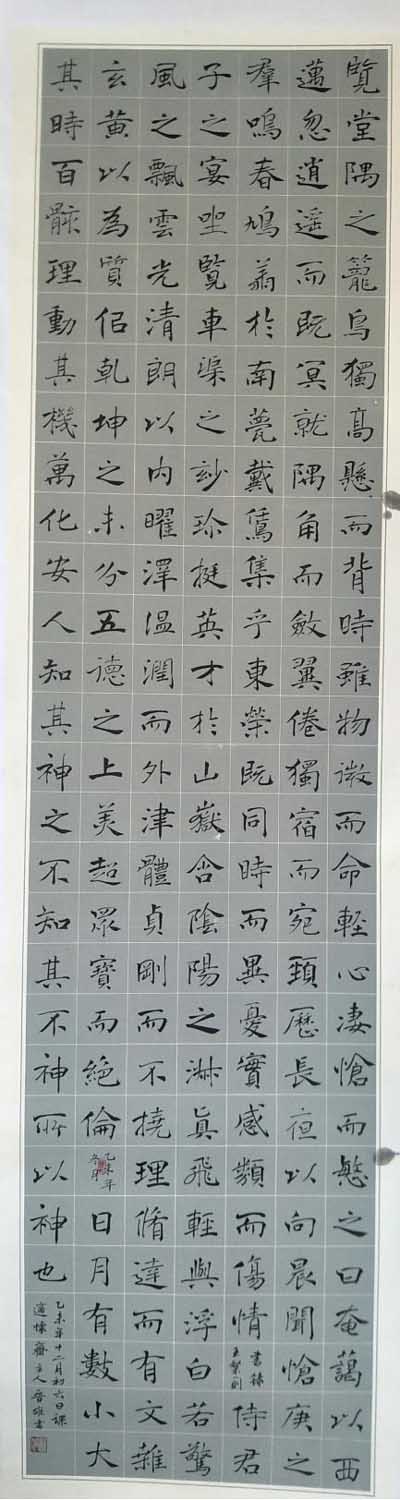 覽堂隅之籠鳥獨高懸而背時雖物微而命輕心淒愴而愍之曰奄藹以西
邁忽逍遥而既冥就隅角而斂翼倦獨宿而宛頸歷長夜以向晨聞愴庚之
羣鳴春鳩翥於南甍戴鵀集乎東榮既同時而異憂實感類而傷情
侍君
子之宴坐覽車渠之玅珍挺英才於山嶽含陰陽之淋真飛輕與浮白若驚
風之飄雲光清朗以内曜澤温潤而外津體貞剛而不撓理脩達而有文雜
玄黄以為質佀乾坤之未分五德之上美超眾寶而絶倫
乙未年
冬月
日月有數小大
其時百骸理動其機萬化安人知其神之不知其不神所以神也
乙未年十二月初六日課
齋主人